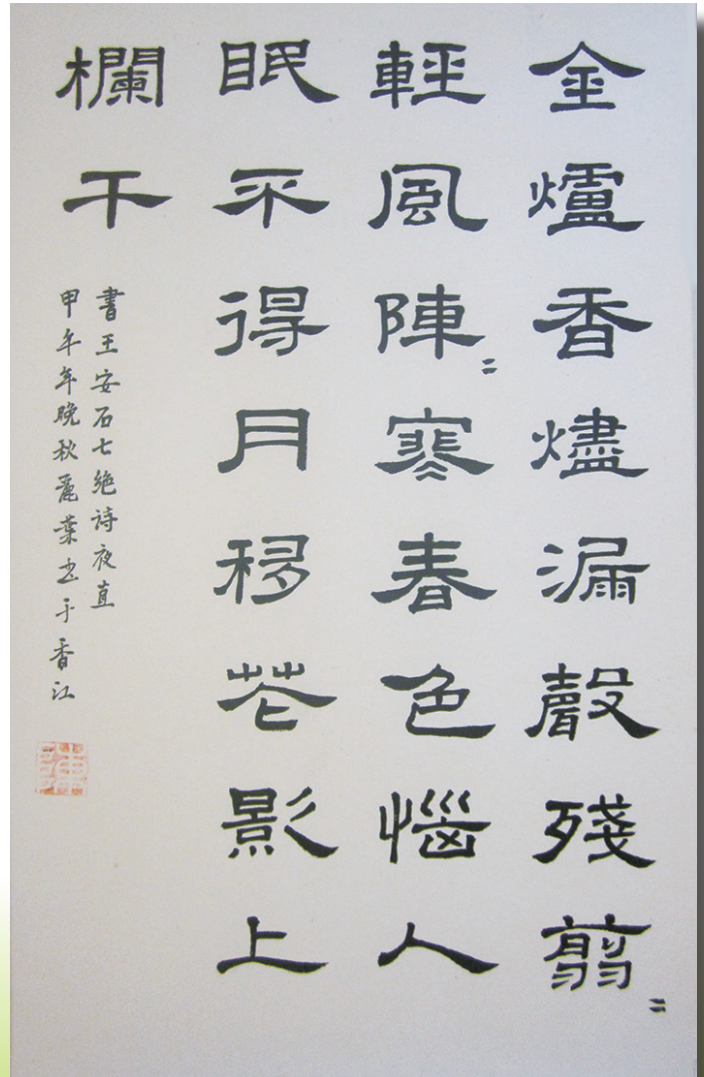 金爐香燼漏聲殘翦〻
輕風陣〻寒春色惱人
眠不得月移花影上
欄干
書王安石七絶诗夜直
甲午年晚秋麗葉书于香江